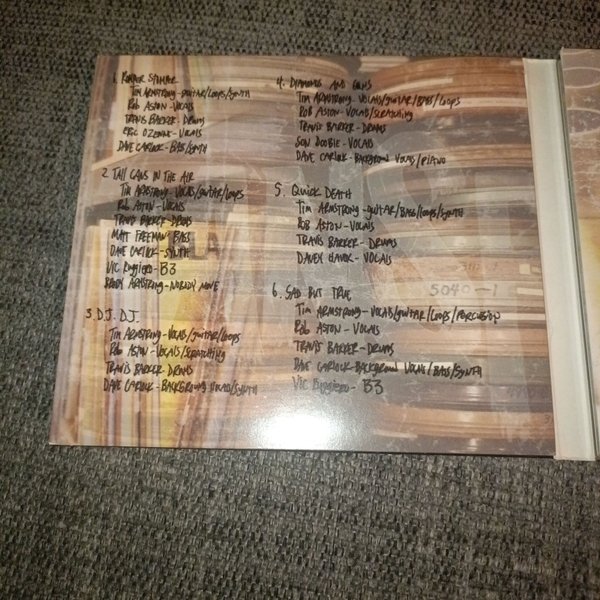 1. Romper Stomper
Tim Armstrong - guitar/loops/synth
Rob Aston - vocals
Travis Barker - Drums
Eric Ozenne - vocals
Dave Carlock - Bass/synth
2. Tall Cans in the Air
Tim Armstrong - vocals/guitar/loops
Rob Aston - vocals
Travis Barker - Drums
Matt Freeman - Bass
Dave Carlock - synth
Vic Ruggiero - B3
Brody Armstrong -
3. D.J. D.J.
Tim Armstrong - vocals/guitar/loops
Rob Aston - vocals/scratching
Travis Barker - Drums
Dave Carlock - Background vocals/synth
4. Diamonds and Guns
Tim Armstrong - vocals/guitar/Bass/loops
Rob Aston - vocals/scratching
Travis Barker - Drums
Son Doobie - vocals
Dave Carlock - Background vocals/piano
5. Quick Death
Tim Armstrong - guitar/Bass/loops/synth
Rob Aston - vocals
Travis Barker - Drums
Davey Havok - vocals
6. Sad But True
Tim Armstrong - vocals/guitar/loops/percussion
Rob Aston - vocals
Travis Barker - Drums
Dave Carlock - Background vocals/Bass/synth
Vic Ruggiero - B3
5040-1